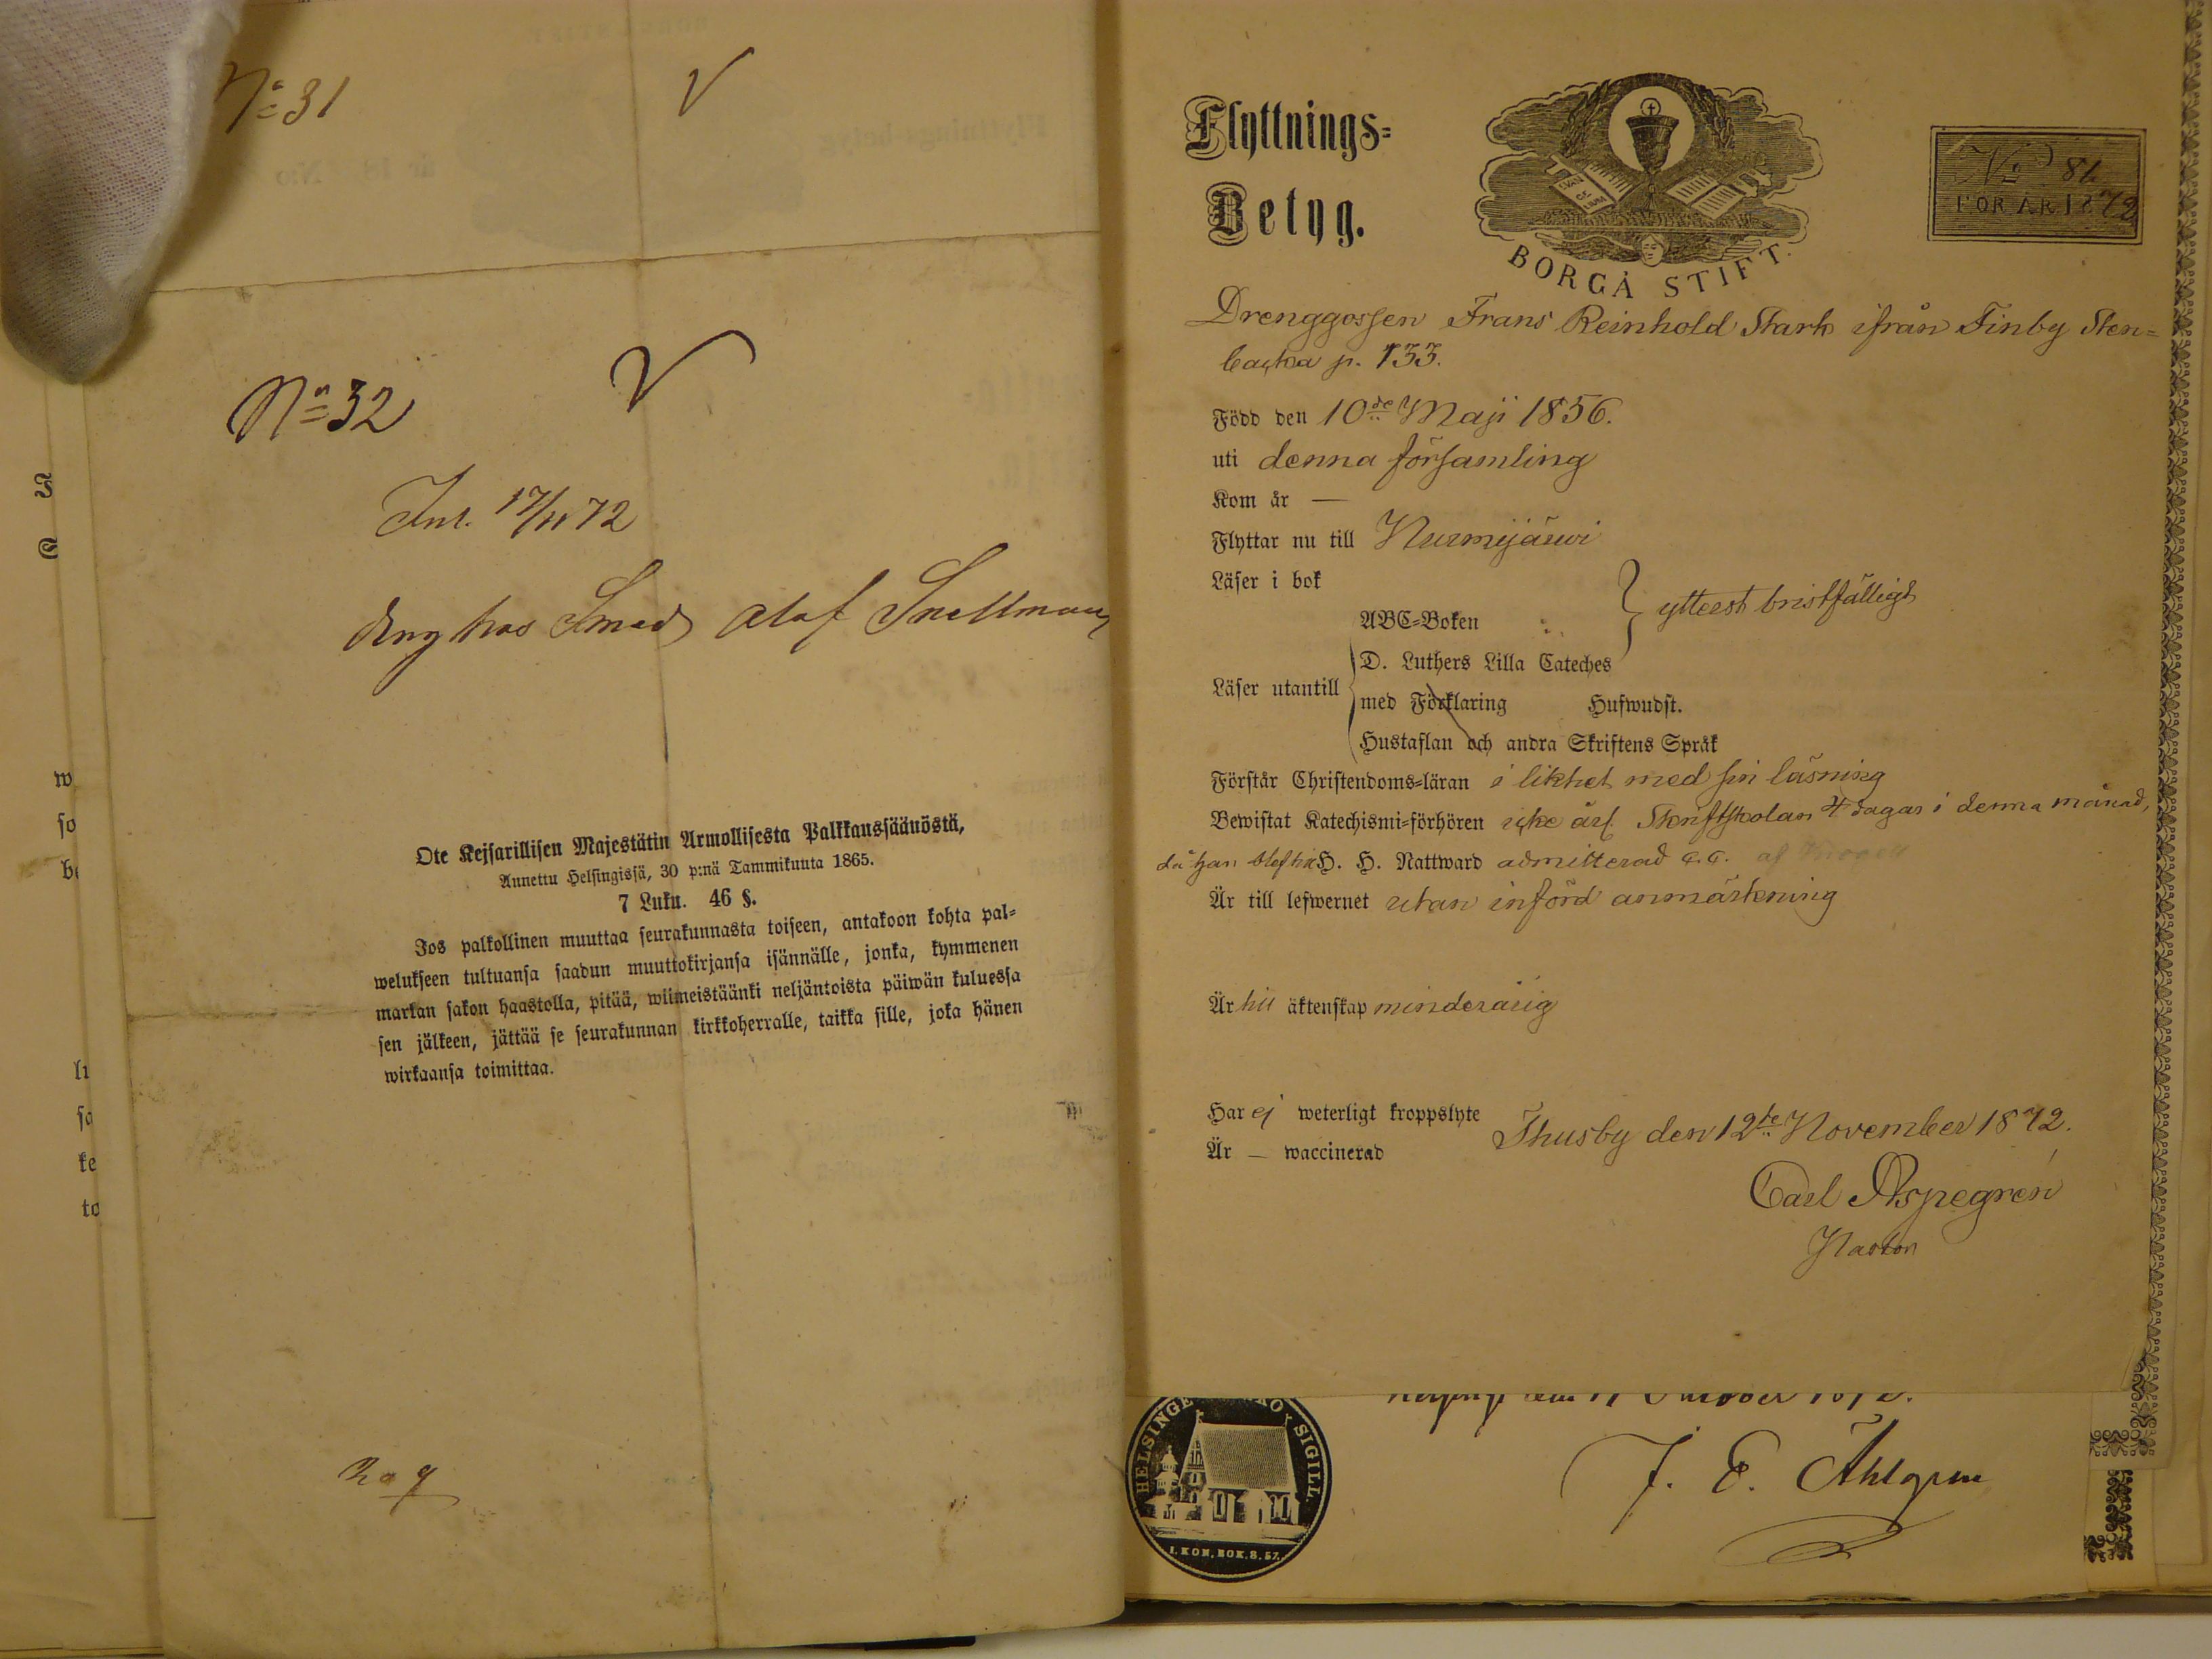 No 31
V
No 32
V
Inl. 17/11 72
drg hos Smed Olof Snellman
Ote Kejsarillisen Majestätin Armollisesta Palkkaussäänöstä,
Annettu Helsingissä, 30 p:nä Tammikuuta 1865.
7 Luku. 46 §.
Jos palkollinen muuttaa seurakunnasta toiseen, antakoon kohta pal=
welukseen tultuansa saadun muuttokirjansa isännälle, jonka, kymmenen
markan sakon haastolla, pitää, wiimeistäänki neljäntoista päiwän kuluessa
sen jälkeen, jättää se seurakunnan kirkkoherralle, taikka sille, joka hänen
wirkaansa toimittaa.
Flyttnings=
Betyg.
EVAN
GE
LIUM
BORGÅ STIFT.
No 81.
FÖR ÅR 1872
Drenggossen Frans Reinhold Stark ifrån Finby Sten=
backa p. 133.
Född den 10de Maji 1856.
uti denna församling
Kom år —
Flyttar nu till Nurmijärvi
Läser i bok
ABC=Boken } ytterst bristfälligt
D. Luthers Lilla Cateches
Läser utantill med Förklaring Hufwudst.
Hustaflan och andra Skriftens Språk
Förstår Christendoms=läran i likhet med sin läsning
Bewistat Katechismi=förhören icke års. Skriftskolan 4 dagar i denna månad,
då han blef till H. H. Nattward admitterad
Är till lefwernet utan införd anmärkning
Är till äktenskap minderårig
Har ej weterligt kroppslyte
Är — waccinerad
Thusby den 12te November 1872.
Carl Aspegren
Pastor
HELSINGE SIGILL
I. KON. BOK. 8. 57.
J. E. Åhlgren